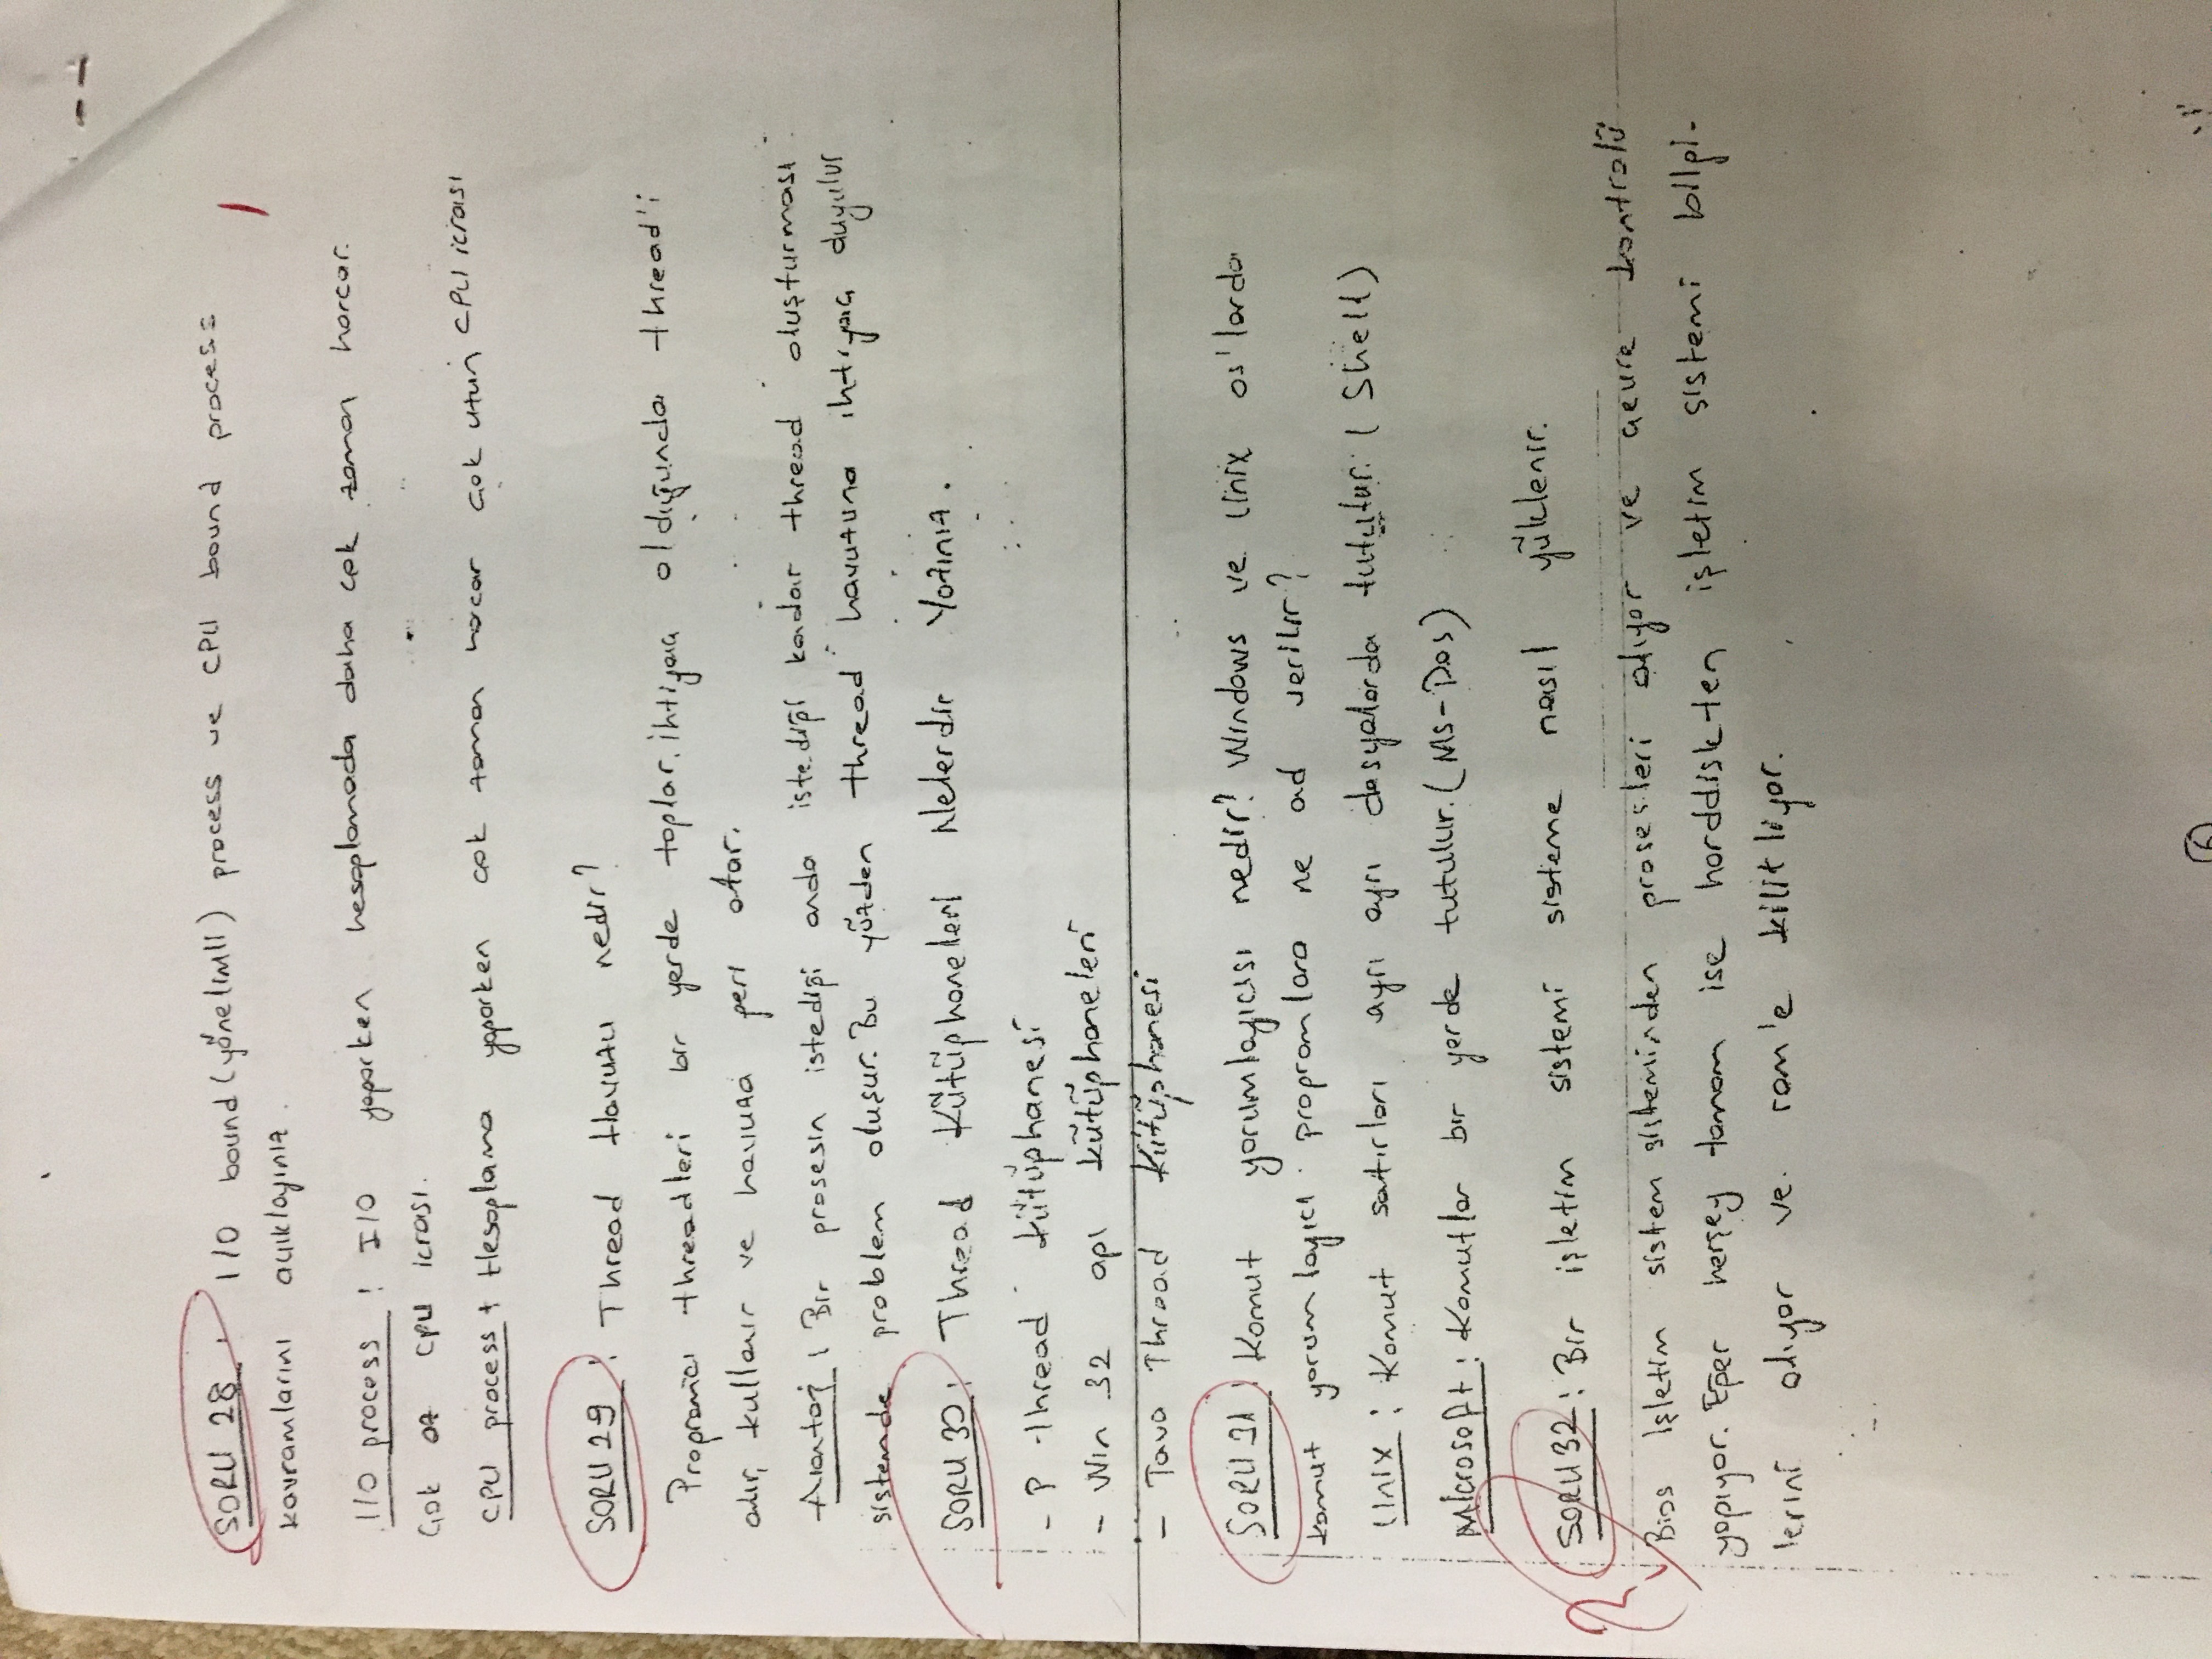 SORU 28 : I/O bound (yönelimli) process ve CPU bound process
kavramlarını açıklayınız.
I/O process : I/O yaparken hesaplamada daha çok zaman harcar.
Çok az CPU icrası.
CPU process : Hesaplama yaparken çok zaman harcar Çok uzun CPU icrası
SORU 29 : Thread Havuzu nedir?
Programcı threadleri bir yerde toplar. İhtiyacı olduğunda thread'i
alır, kullanır ve havuza geri atar.
Avantaj : Bir prosesin istediği anda istediği kadar thread oluşturması
sistemde problem oluşur. Bu yüzden thread havuzuna ihtiyaç duyulur
SORU 30 : Thread Kütüphaneleri Nelerdir Yazınız.
- P thread kütüphanesi
- Win 32 apı kütüphaneleri
- Java Thread Kütüphanesi
SORU 31 : Komut yorumlayıcısı nedir? Windows ve Unix os'larda
komut yorumlayıcı programlara ne ad verilir?
Unix : Komut satırları ayrı ayrı dosyalarda tutulur. (Shell)
Microsoft : Komutlar bir yerde tutulur. (Ms-Dos)
SORU 32 : Bir işletim sistemi sisteme nasıl yüklenir.
Bios işletim sistem sisteminden prosesleri alıyor ve çevre kontrolü
yapıyor. Eğer herşey tamam ise harddiskten işletim sistemi bilgi-
lerini alıyor ve ram'e kilitliyor.
6